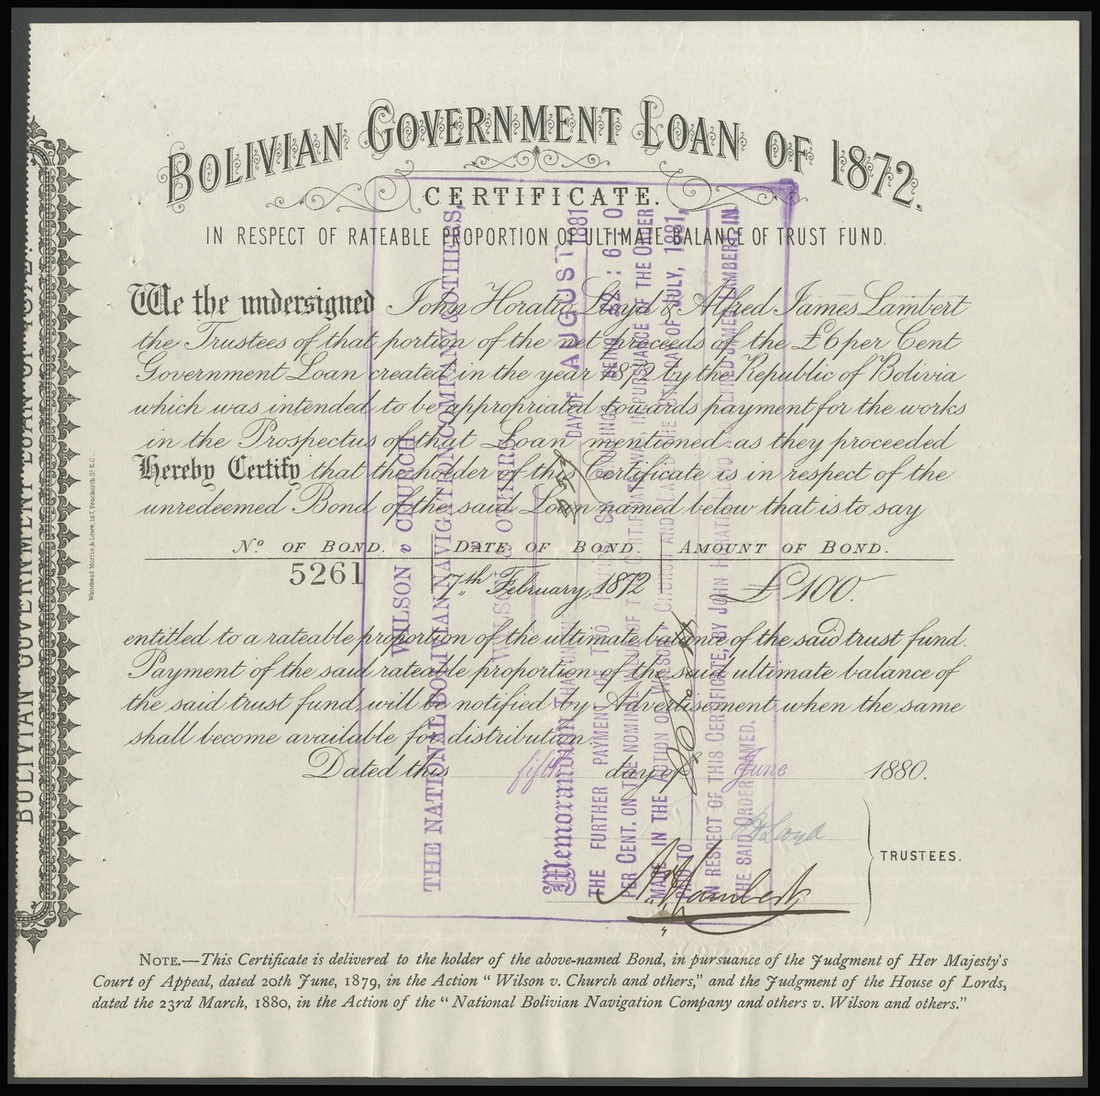 BOLIVIAN GOVERNMENT LOAN OF 1872.
CERTIFICATE.
IN RESPECT OF RATEABLE PROPORTION OF ULTIMATE BALANCE OF TRUST FUND.
We the undersigned John Horatio Lloyd & Alfred James Lambert
the Trustees of that portion of the net proceeds of the £6 per Cent
Government Loan created in the year 1872 by the Republic of Bolivia
which was intended to be appropriated towards payment for the works
in the Prospectus of that Loan mentioned as they proceeded
Hereby Certify that the holder of this Certificate is in respect of the
unredeemed Bond of the said Loan named below that is to say
No. OF BOND. DATE OF BOND. AMOUNT OF BOND.
5261 7th February, 1872 £100.
entitled to a rateable proportion of the ultimate balance of the said trust fund.
Payment of the said rateable proportion of the said ultimate balance of
the said trust fund will be notified by Advertisement when the same
shall become available for distribution.
Dated this fifth day of June 1880.
JHLloyd
A J Lambert
TRUSTEES.
NOTE.—This Certificate is delivered to the holder of the above-named Bond, in pursuance of the Judgment of Her Majesty's
Court of Appeal, dated 20th June, 1879, in the Action "Wilson v. Church and others," and the Judgment of the House of Lords,
dated the 23rd March, 1880, in the Action of the "National Bolivian Navigation Company and others v. Wilson and others."
WILSON v CHURCH
THE NATIONAL BOLIVIAN NAVIGATION COMPANY & OTHERS,
v
WILSON & OTHERS.
Memorandum THAT ON THE DAY OF AUGUST 1881
THE FURTHER PAYMENT OF TWO POUNDS SIX SHILLINGS BEING £2:6:0
PER CENT. ON THE NOMINAL VALUE OF THIS CERTIFICATE WAS IN PURSUANCE OF THE ORDER
MADE IN THE ACTION OF WILSON V CHURCH AND DATED THE DAY OF JULY, 1881,
PAID TO
IN RESPECT OF THIS CERTIFICATE, BY JOHN HORATIO LLOYD AND ALFRED JAMES LAMBERT IN
THE SAID ORDER NAMED.
BOLIVIAN GOVERNMENT LOAN OF 1872.
Whitehead Morris & Lowe, 167, Fenchurch St. E.C.